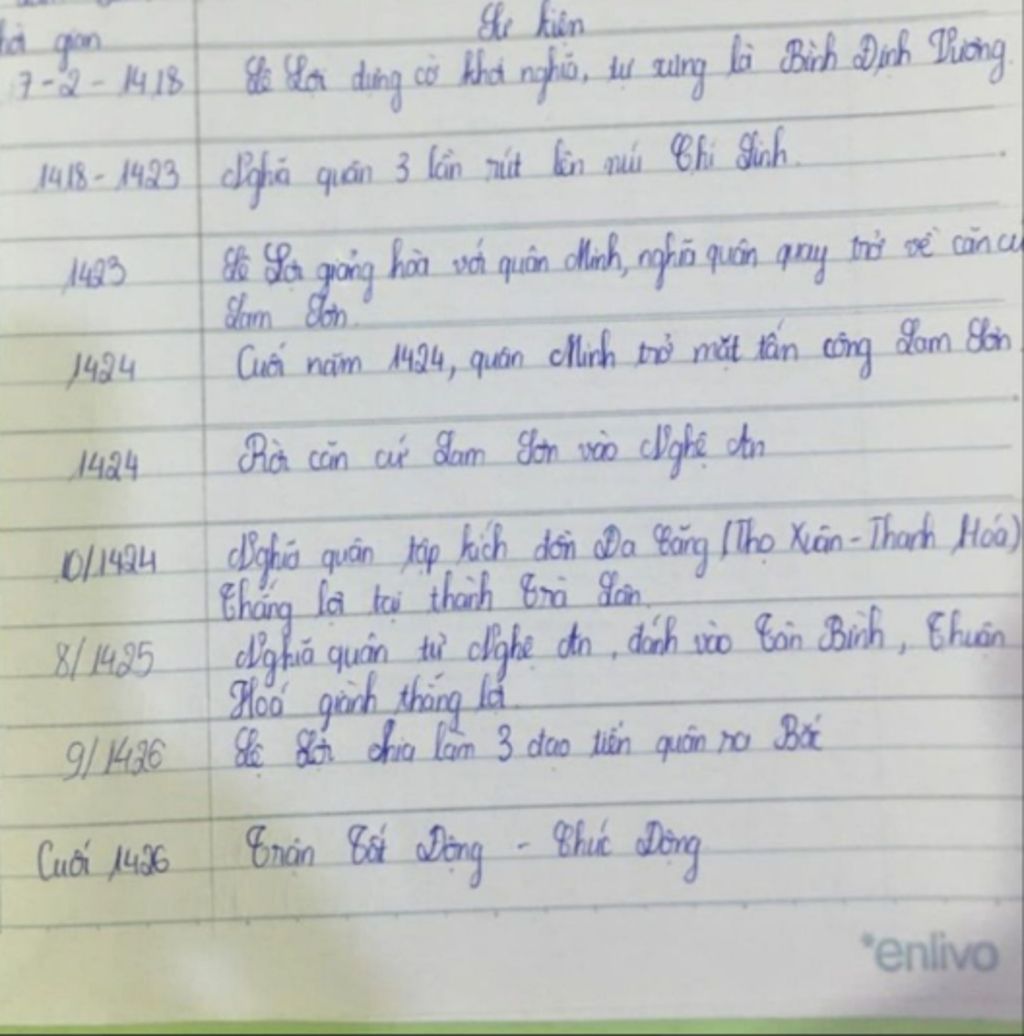 gian Sự kiện
7-2-1418 Lê Lợi dựng cờ khởi nghĩa, tự xưng là Bình Định Vương.
1418-1423 Nghĩa quân 3 lần rút lên núi Chí Linh.
1423 Lê Lợi giảng hoà với quân Minh, nghĩa quân quay trở về căn cứ
Lam Sơn.
1424 Cuối năm 1424, quân Minh trở mặt tấn công Lam Sơn
1424 Rời căn cứ Lam Sơn vào Nghệ An
10/1424 Nghĩa quân tập kích đồn Đa Căng (Thọ Xuân-Thanh Hoá)
thắng lợi tại thành Trà Lân.
8/1425 Nghĩa quân từ Nghệ An, đánh vào Tân Bình, Thuận
Hoá giành thắng lợi.
9/1426 Lê Lợi chia làm 3 đạo tiến quân ra Bắc
Cuối 1426 Trận Tốt Động - Chúc Động
*enlivo